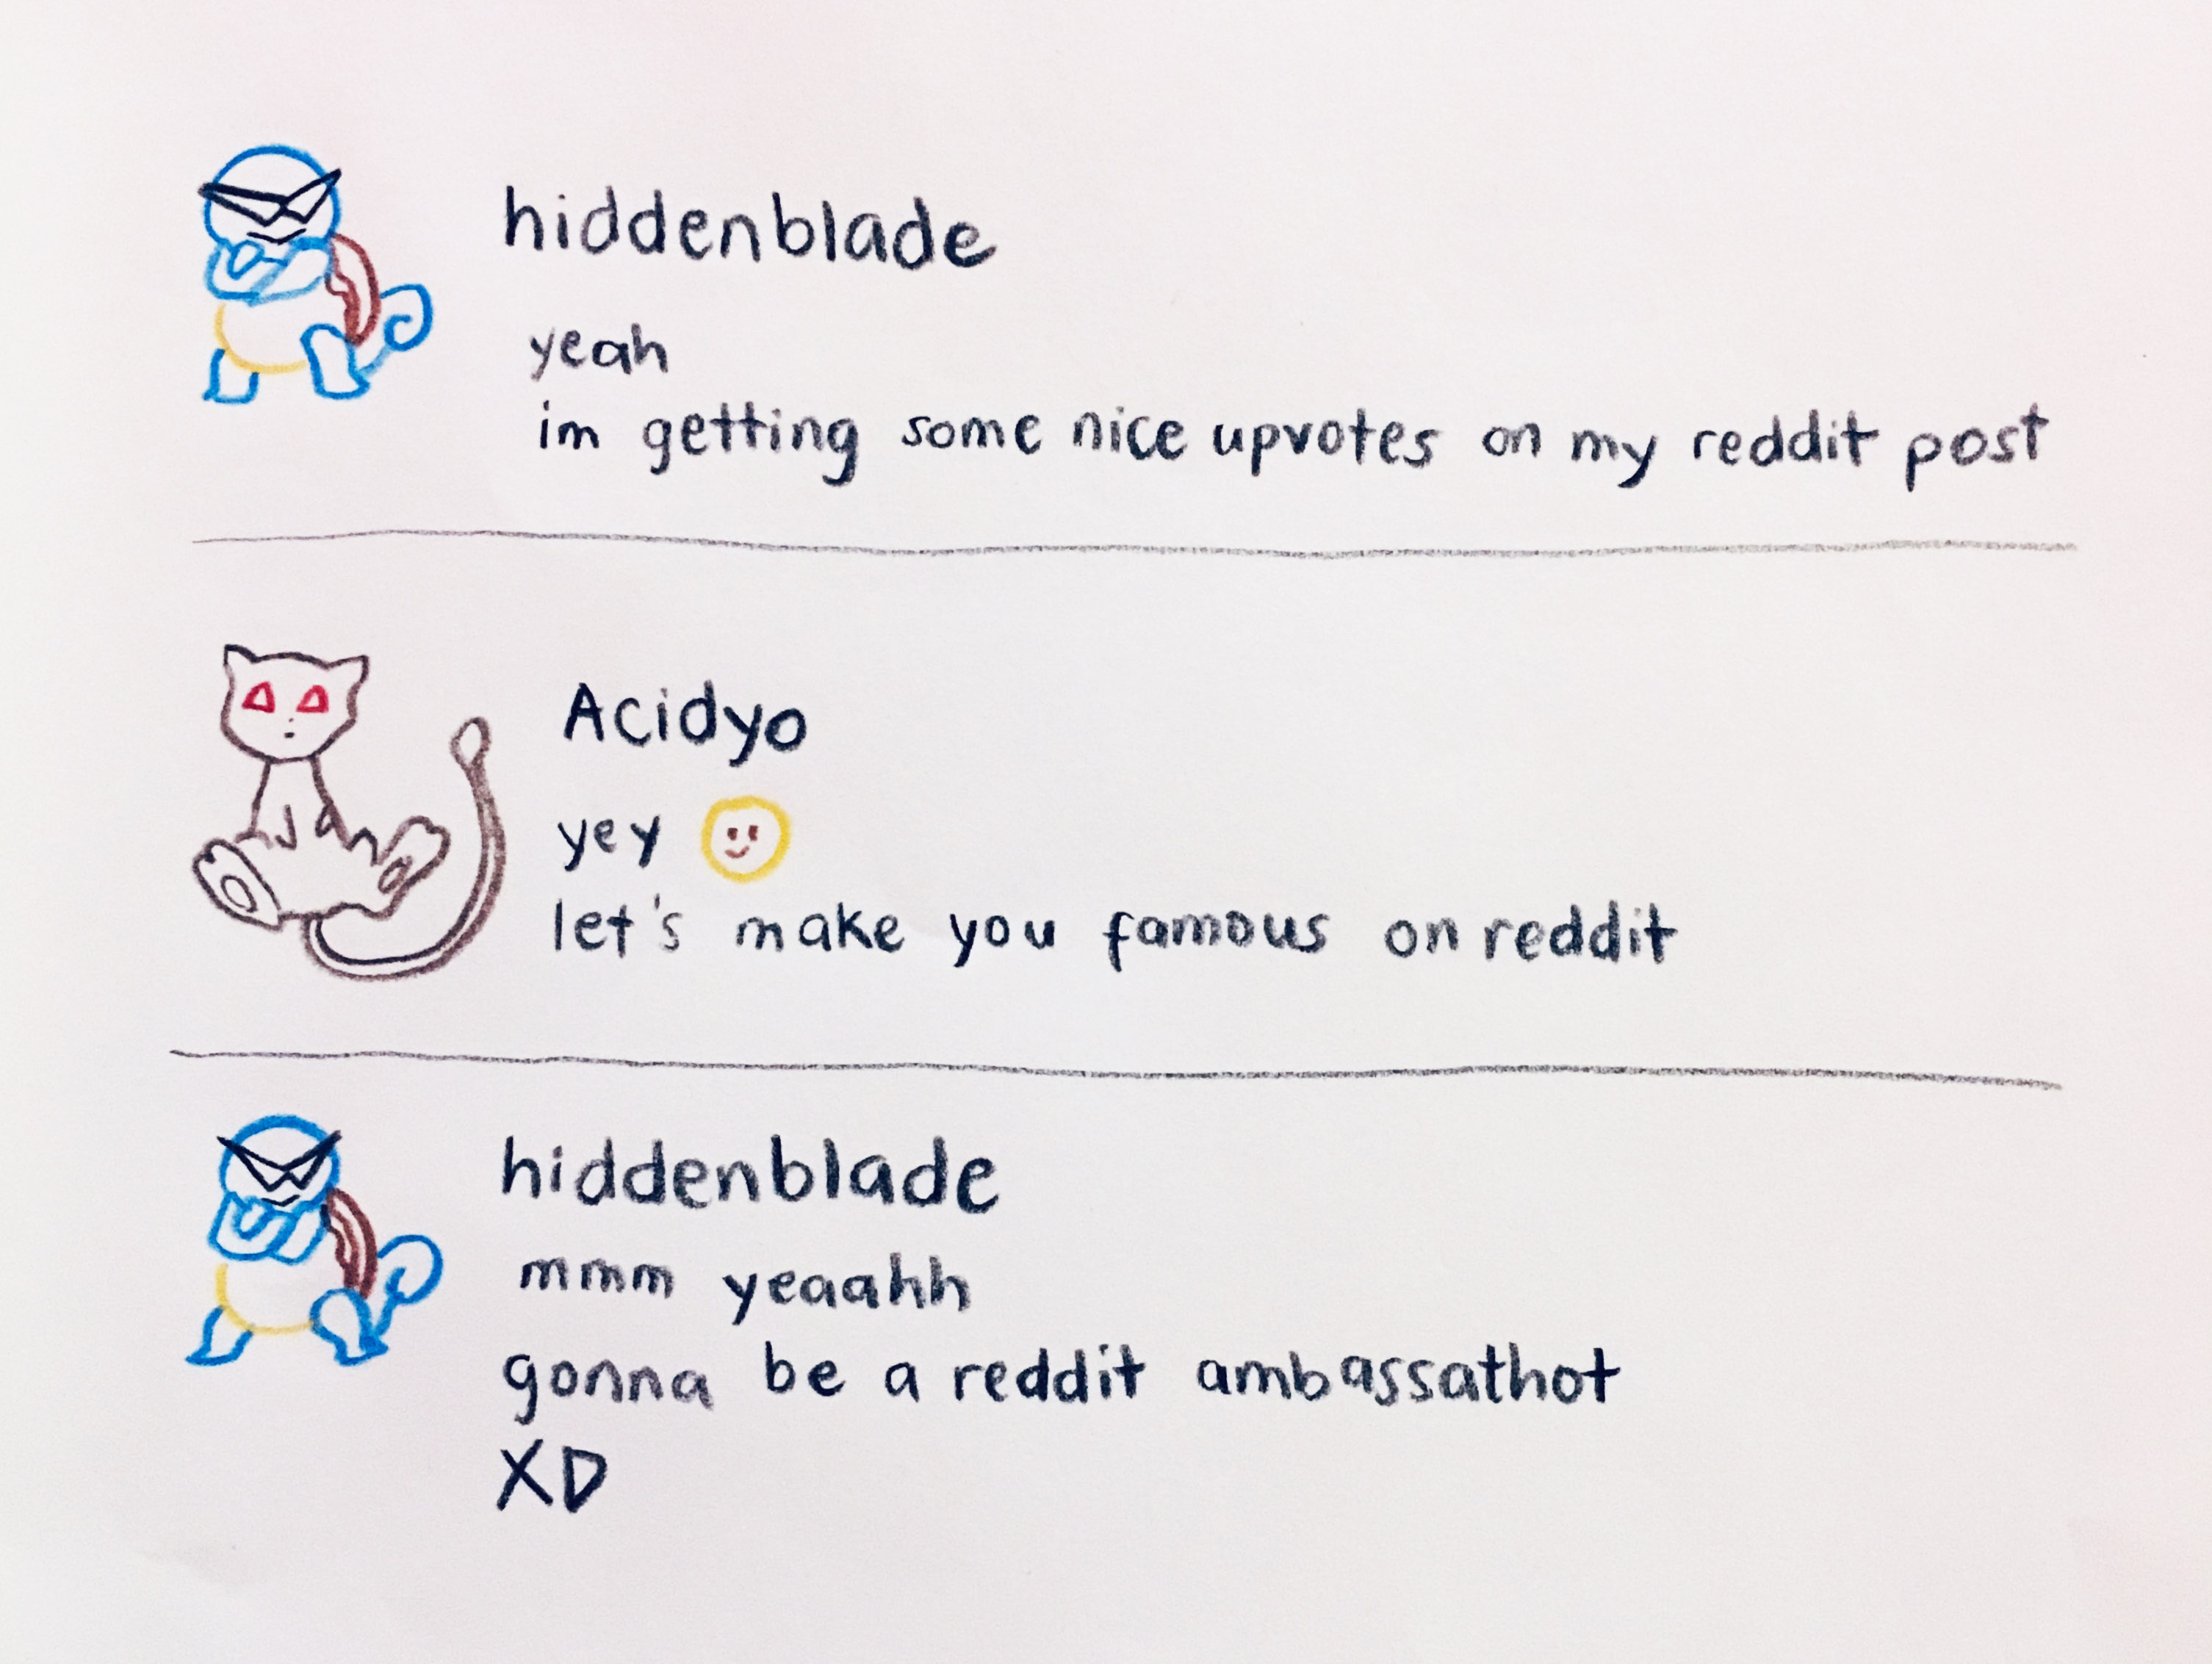 hiddenblade
yeah
im getting some nice upvotes on my reddit post
Acidyo
yey
let's make you famous on reddit
hiddenblade
mmm yeaahh
gonna be a reddit ambassathot
XD